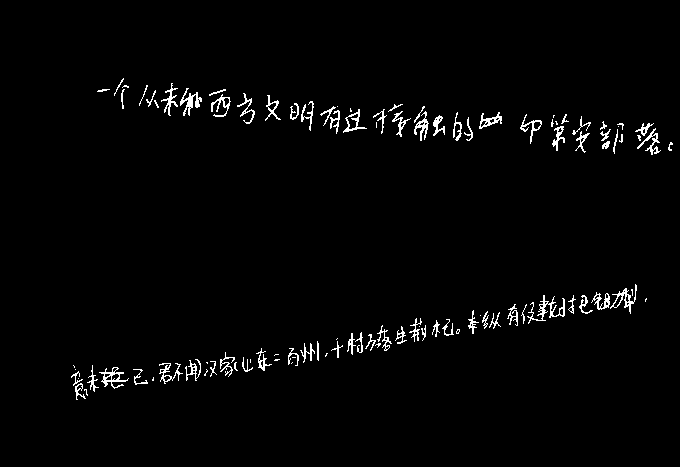 一个从未和西方文明有过接触的印第安部落。
意未已.君不闻汉家山东二百州,千村万落生荆杞。纵有健把锄犁,